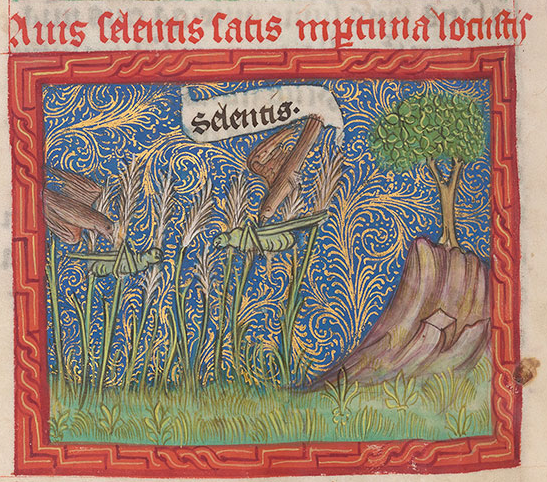 Auis selentis satis inꝑtuna locustis
selentis.